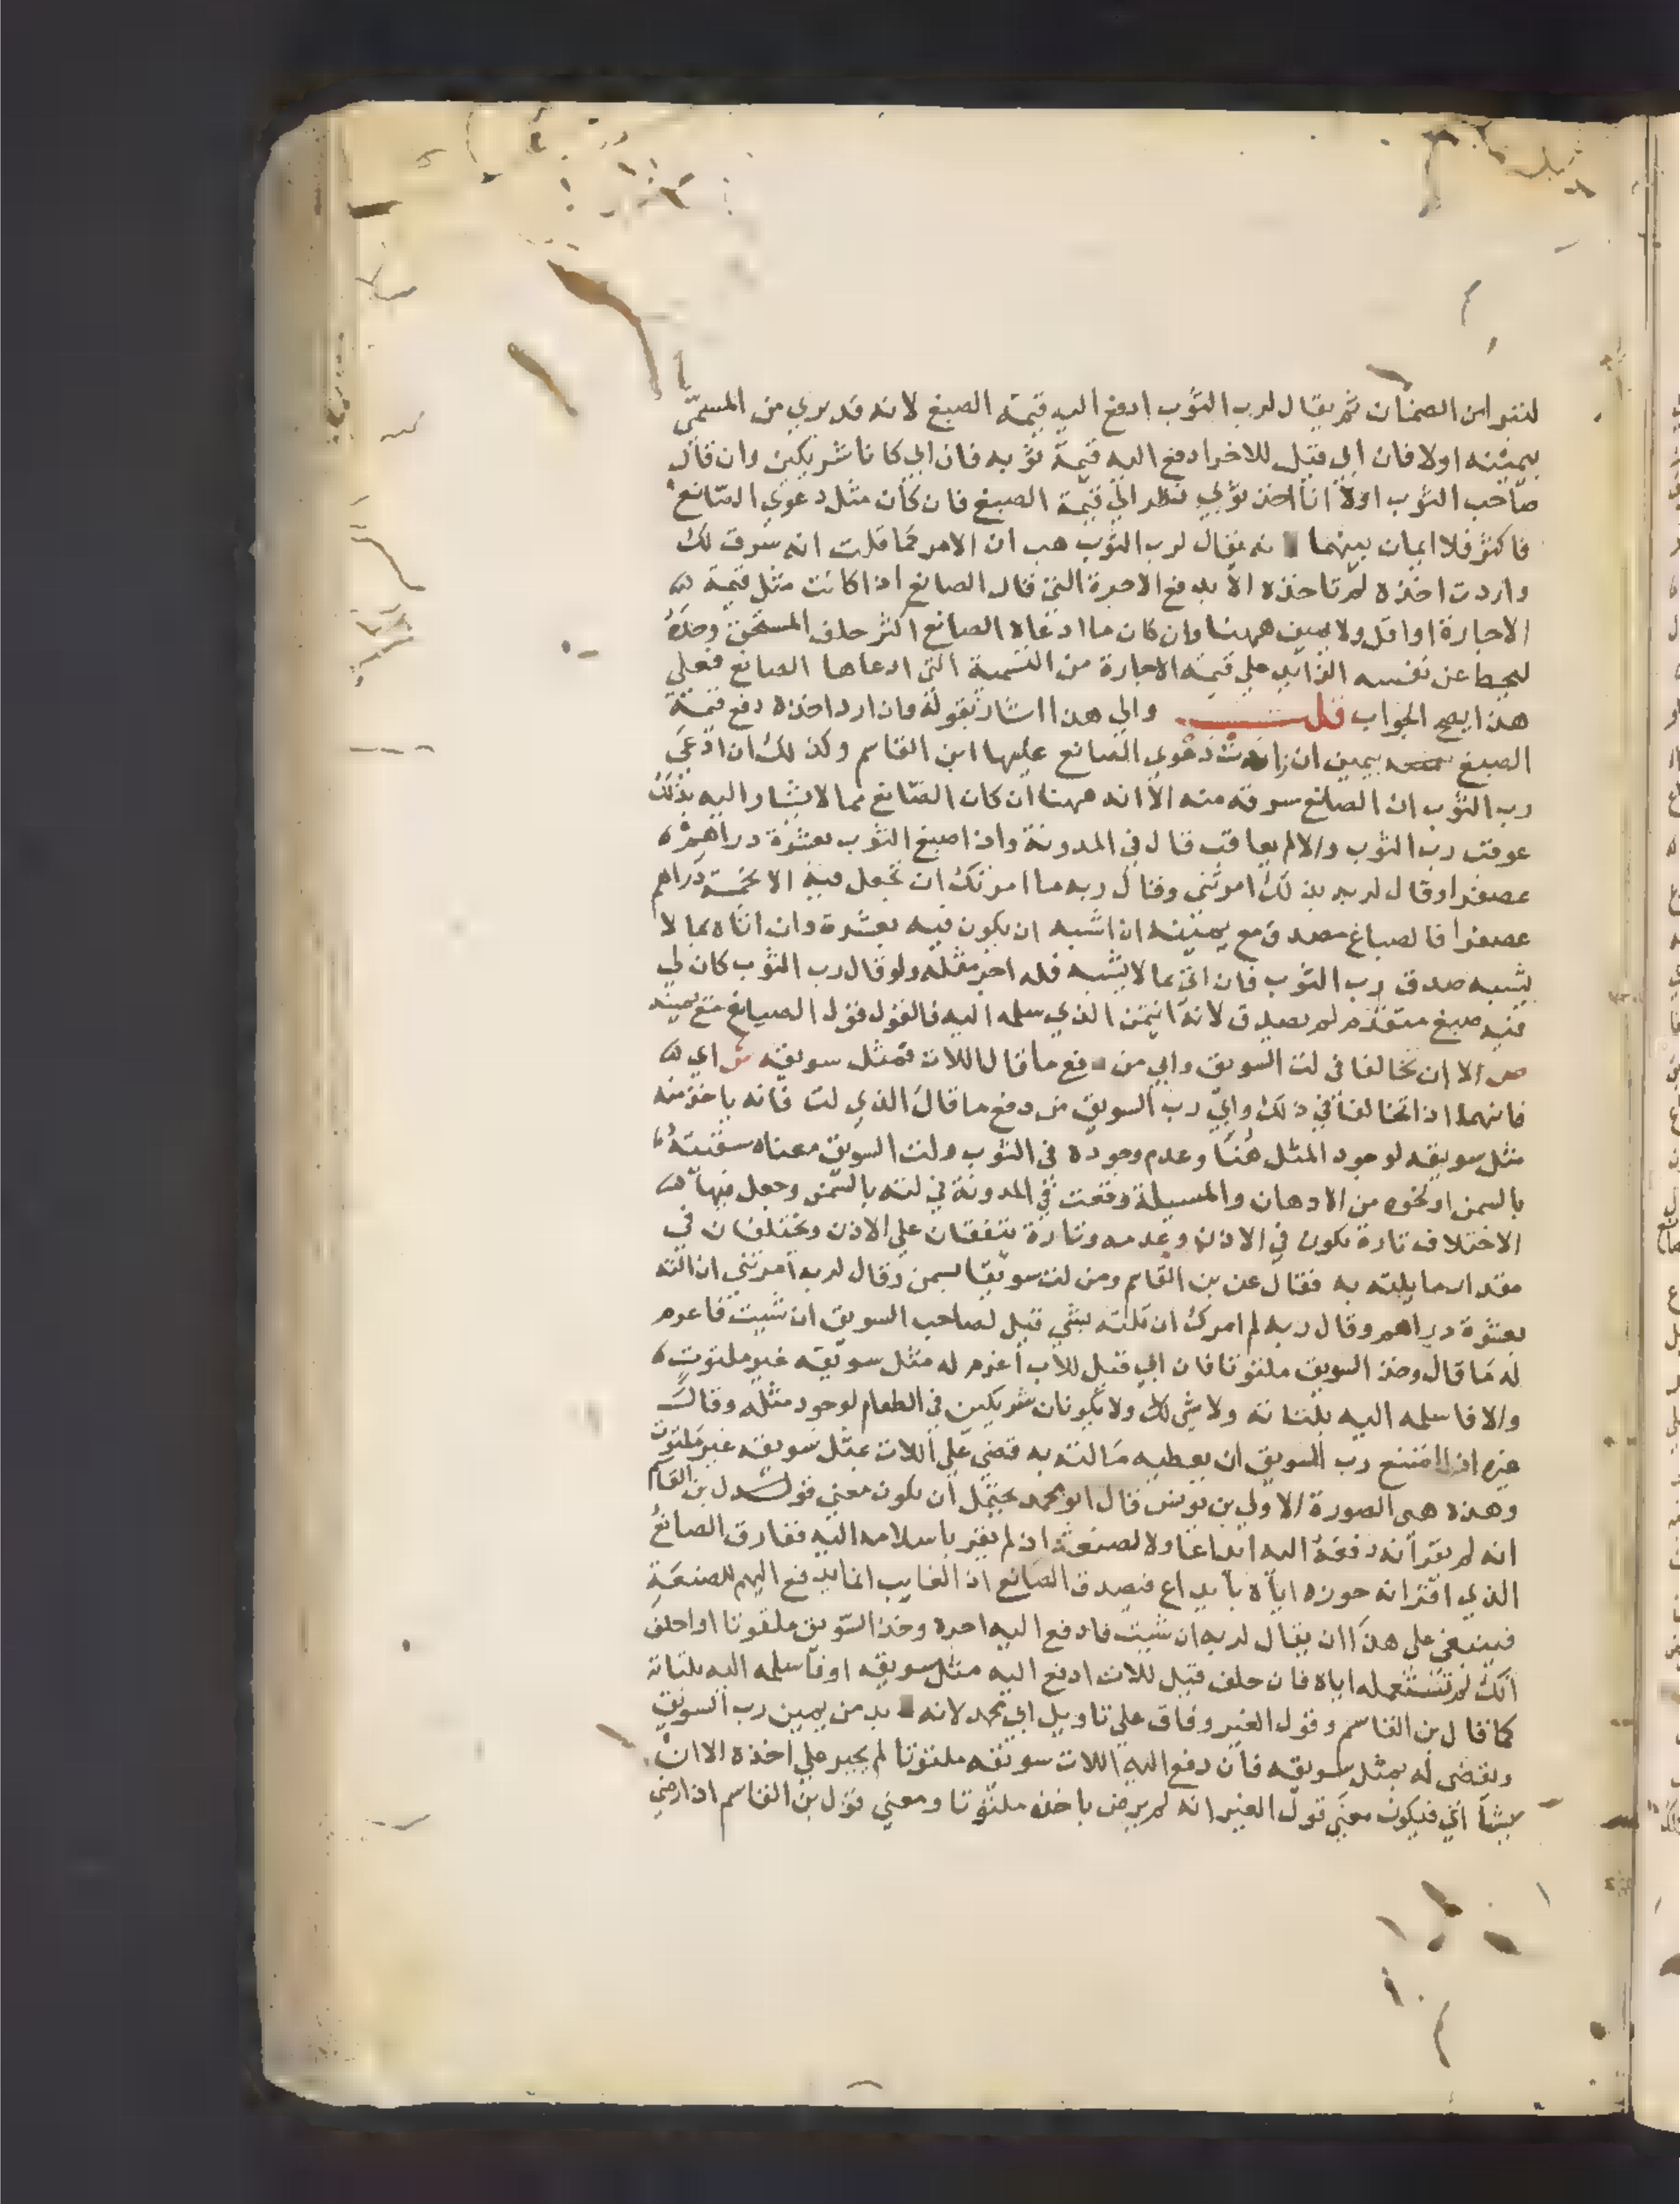 لنفوا من الضمان ثم يقال لرب الثوب ادفع اليه قيمة الصبغ لانه قد بري من المسمى
بيمينه اولا فان ابي قيل للاخر ادفع اليه قيمة ثوبه فان ابي كانا شريكين وان قال
صاحب الثوب اولا انا اخذ ثوبي نظر الي قيمة الصبغ فان كان مثل دعوي الصانع
فاكثر فلا ايمان بينهما نه يقال لرب الثوب هب ان الامر كما قلت انه سرق لك
واردت اخذه لم تاخذه الا بدفع الاجرة التي قال الصانع اذا كانت مثل قيمة
الاجارة او اقل ولا يمين ههنا وان كان ما ادعاه الصانع اكثر حلف المستحق وحده
ليحط عن نفسه الزايد علي قيمة الاجارة من التسمية التي ادعاها الصانع فعلي
هذا يصح الجواب قلت والي هذا اشار بقوله وان ارد اخذه دفع قيمة
الصبغ بيمين ان زادت دعوي الصانع عليها ابن القاسم وكذلك ان ادعي
رب الثوب ان الصانع سرقه منه الا انه ههنا ان كان الصانع مما لا يشار اليه بذلك
عوقب رب الثوب والا لم يعاقب قال في المدونة واذا صبغ الثوب بعشرة دراهم
عصفرا وقال لربه بذلك امرتني وقال ربه ما امرتك ان تجعل فيه الا بخمسة دراهم
عصفرا فالصباغ مصدق مع يمينه ان اشبه ان يكون فيه بعشرة وان اتاه بما لا
يشبه صدق رب الثوب فان اتي بما لا يشبه فله اجر مثله ولو قال رب الثوب كان لي
فيه صبغ متقدم لم يصدق لانه ايتمن الذي سلمه اليه فالقول قول الصباغ مع يمينه
ص الا ان تخالفا في لت السويق وابي من دفع ما قال اللات فمثل سويقه ش اي
فانهما اذا تخالفا في ذلك وابي رب السويق من دفع ما قال الذي لت فانه ياخذ منه
مثل سويقه لوجود المثل هنا وعدم وجوده في الثوب ولت السويق معناه سقيته
بالسمن او نحوه من الادهان والمسيلة وقعت في المدونة في لته بالسمن وجعل فيها
الاختلاف تارة يكون في الاذن وعدمه وتارة يتفقان علي الاذن ويختلفان في
مقدار ما يلته به فقال عن بن القاسم ومن لت سويقا بسمن وقال لربه امرتني ان الته
بعشرة دراهم وقال ربه لم امرك ان تلته بشي قيل لصاحب السويق ان شيت فاغرم
له ما قال وخذ السويق ملتوتا فان ابي قيل للات اغرم له مثل سويقه غير ملتوت
والا فاسلمه اليه بلتاته ولا شي لك ولا يكونان شريكين في الطعام لوجود مثله وقال
غيره اذا امتنع رب السويق ان يعطيه ما لته به قضي علي اللات بمثل سويقه غير ملتوت
وهذه هي الصورة الاولي بن يونس قال ابو محمد يحتمل ان يكون معني قول بن القاسم
انه لم يقر انه دفعه اليه ايداعا ولا لصنعة اذ لم يقر باسلامه اليه ففارق الصانع
الذي اقر انه حوزه اياه بايداع فيصدق الصانع اذ الغايب انما يدفع اليهم للصنعة
فينبغي علي هذا ان يقال لربه ان شيت فادفع اليه اجره وخذ السويق ملتوتا او احلف
انك لم تستعمله اياه فان حلف قيل للات ادفع اليه مثل سويقه او فاسلمه اليه بلتاته
كما قال بن القاسم وقول الغير وفاق علي تاويل ابي محمد لانه بد من يمين رب السويق
ويقضي له بمثل سويقه فان دفع اليه اللات سويقه ملتوتا لم يجبر علي اخذه الا ان
يشا اي فيكون معني قول الغير انه لم يرض ياخذه ملتوتا ومعني قول بن القاسم اذا رضي